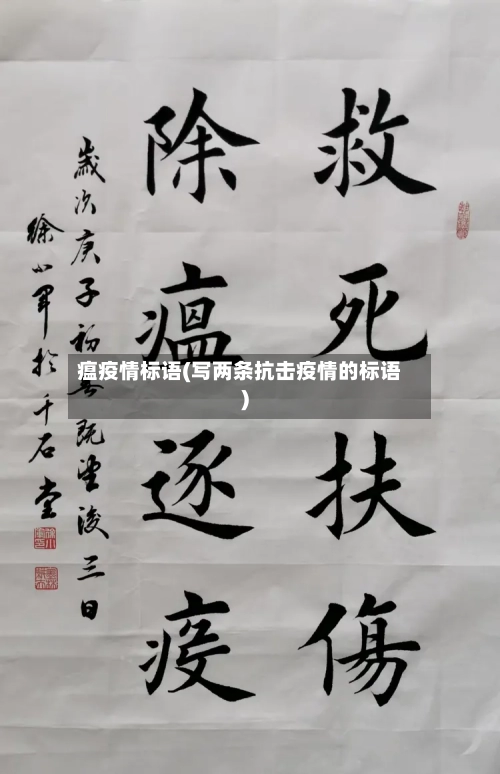 救死扶傷
除瘟逐疫
歲次庚子初春既望後三日
徐小军於千石堂
瘟疫情标语(写两条抗击疫情的标语
)